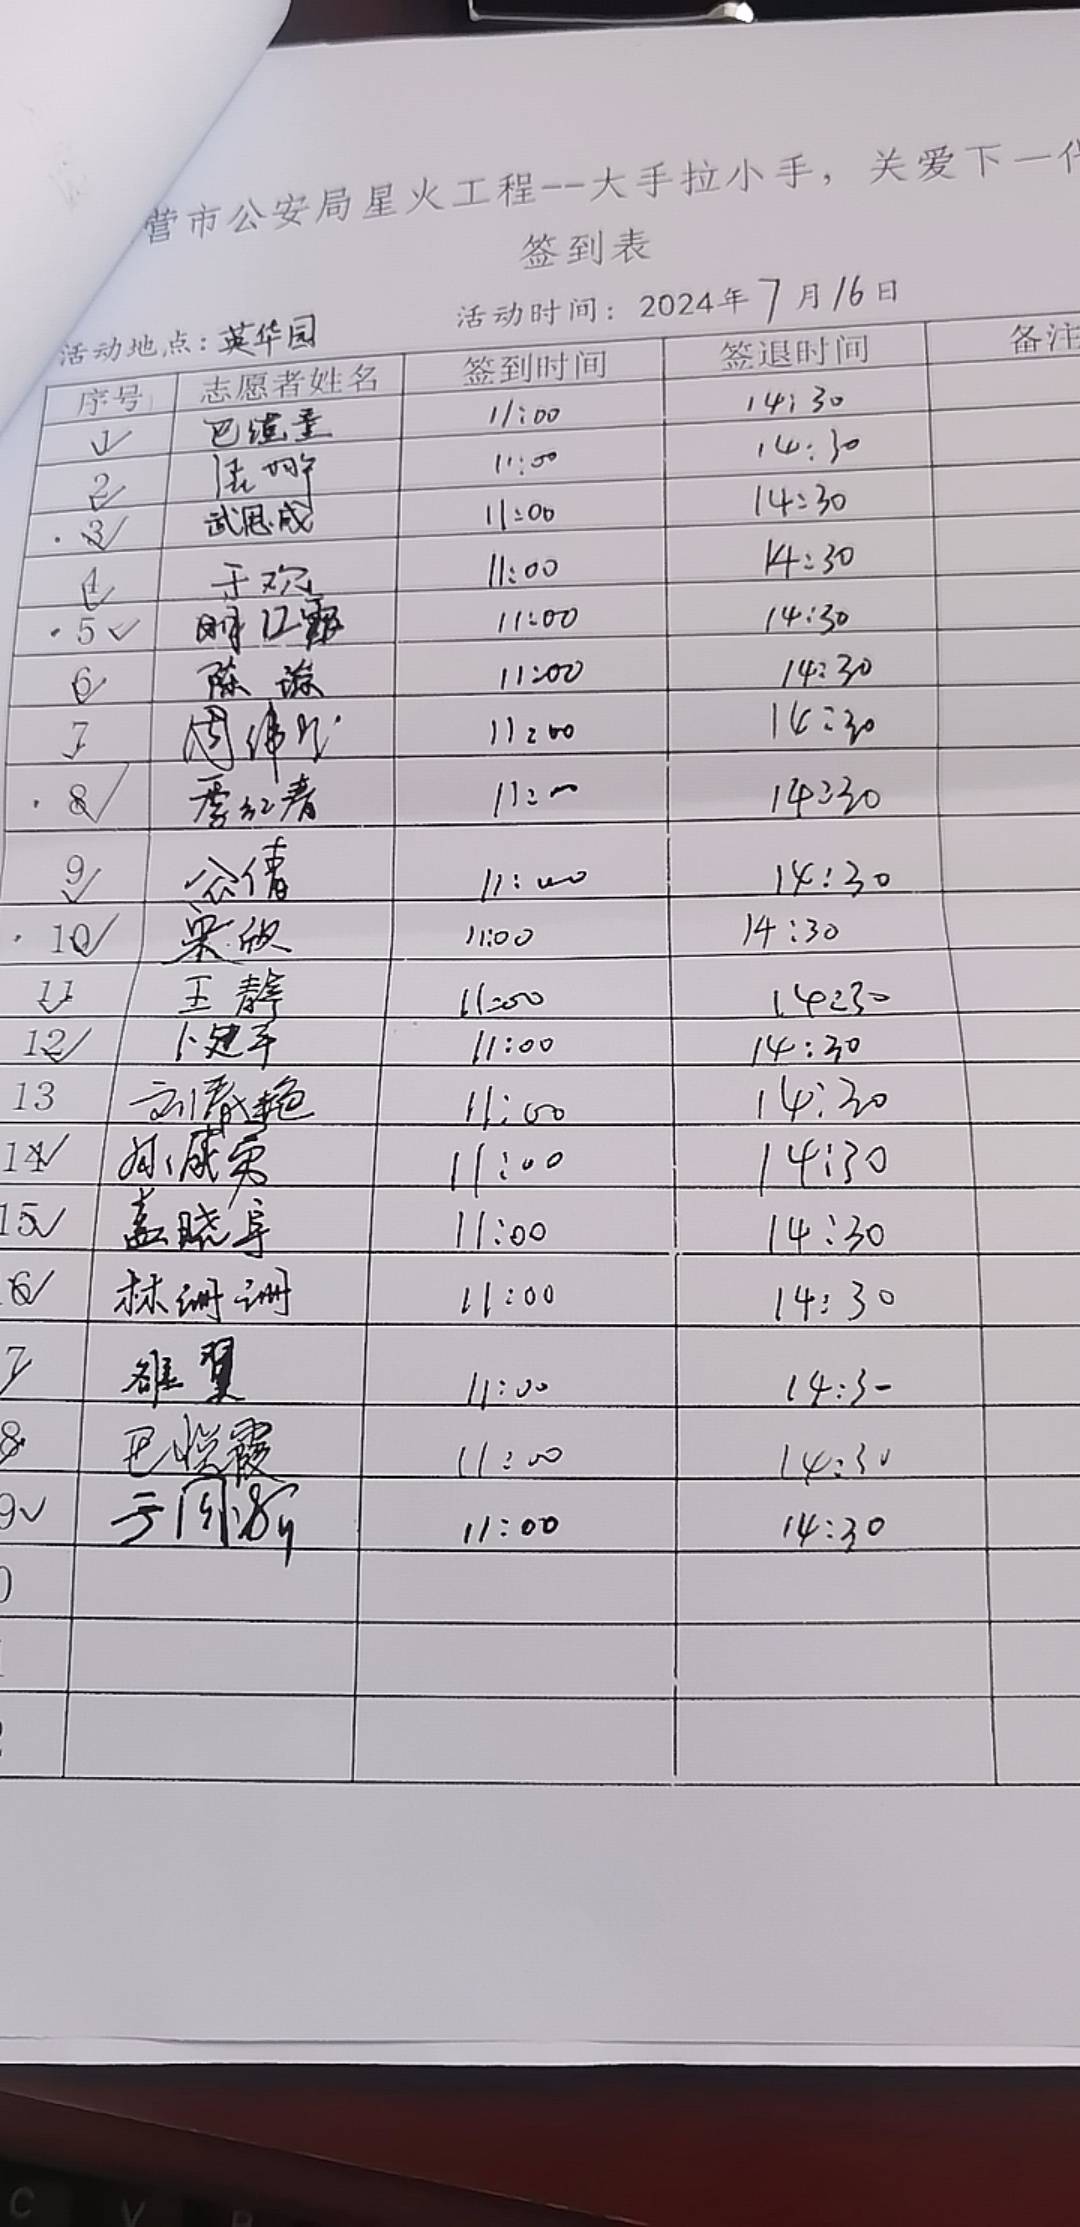 营市公安局星火工程--大手拉小手，关爱下一代
签到表
活动地点：英华园 活动时间：2024年7月16日
序号 志愿者姓名 签到时间 签退时间 备注
1 11:00 14:30
2 11:00 14:30
3 武恩成 11:00 14:30
4 于欢 11:00 14:30
5 11:00 14:30
6 陈 11:00 14:30
7 周伟 11:00 14:30
8 季红春 11:00 14:30
9 公倩 11:00 14:30
10 梁欣 11:00 14:30
11 王静 11:00 14:30
12 卜建军 11:00 14:30
13 刘春艳 11:00 14:30
14 孙成英 11:00 14:30
15 盖晓 11:00 14:30
6 林珊珊 11:00 14:30
7 翼 11:00 14:30
8 巴悦霞 11:00 14:30
9 于 11:00 14:30
0
1
2
C V B